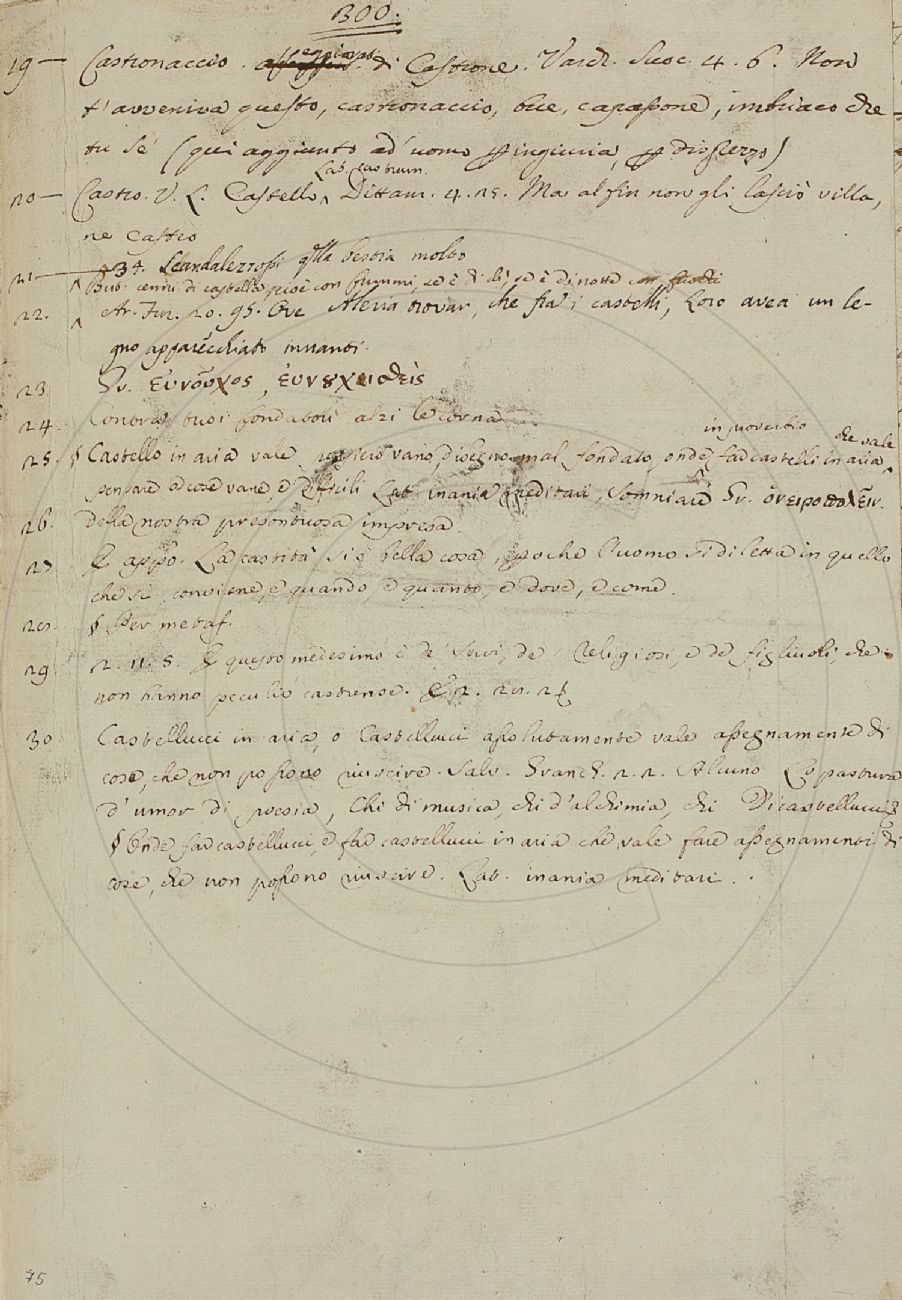 300.
19 — Castronaccio. eggiorat. di Castrone. Varch. Suoc. 4. 6. Non
t'avveniva questo, castronaccio, bue, capassone, imbriaco che
tu sé (qui aggiunto ad uomo p ingiuria, p disprezzo)
Lat. castrum.
20 — Castro. V. L. Castello, Dittam. 4. 25. Ma al fin non gli lasciò villa,
ne castro
21. 34. Scandalezzossi qlla bestia molto
But. cenni di castella, cioè con fummi, se è di dì, se è di notte con fuochi
22. Ar. Fur. 20. 95. Ove Aleria trovar, che fra i castelli, Loro avea un le-
gno apparecchiato innanti.
23 Gr. εὐνοῦχος, εὐνουχισθεὶς
24. Contra tuoi fondatori alzi le corna
in proverbio
che vale
25. § Castello in aria vale pensiero vano, disegno mal fondato, onde far castelli in aria
pensare a cose vane, e difficili Lat. inania meditari, somniare Gr. ὀνειροπολεῖν.
26. della nostra presontuosa impresa
27 E appo. La castità si è bella cosa, poche l'uomo si diletta in quello
che si conviene, e quando, e quanto, e dove, e come.
28. § Per metaf.
29 2. 11. 8. E questo medesimo è de' servi, de' Religiosi, e de' figliuoli, che
non hanno peculio castrense. E 2. 28. 2
30 Castellucci in aria, o Castellucci assolutamente vale assegnamente di
cose, che non possono riuscire. Salv. Granch. 2. 2. Alcuno Lo pastura
d'umor di poesia, Chi di musica, chi d'alchimia, chi Di castellucci
§ Onde far castellucci, e far castellucci in aria che vale fare assegnamenti di
cose, che non possono riuscire. Lat. inania meditari.
75